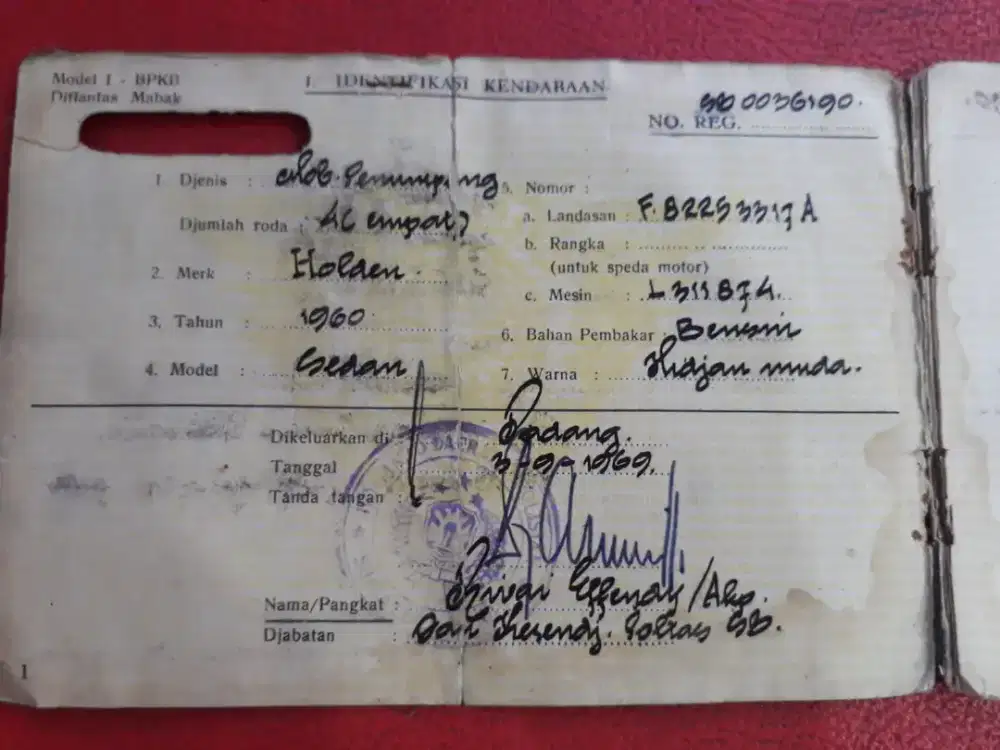 Model I - BPKB
Ditlantas Mabak
I. IDENTIFIKASI KENDARAAN
SB 0036190.
NO. REG.
1 Djenis : Mob. Penumpang
Djumlah roda : 4 ( empat )
2. Merk : Holden.
3. Tahun : 1960
4. Model : Sedan
5. Nomor :
a. Landasan : F.82253317A
b. Rangka :
(untuk speda motor)
c. Mesin : L311874.
6. Bahan Pembakar : Bensin
7. Warna : Hidjau muda.
Dikeluarkan di Padang.
Tanggal 3-9-1969.
Tanda tangan :
Nama/Pangkat : Effendy/Akp.
Djabatan :
1